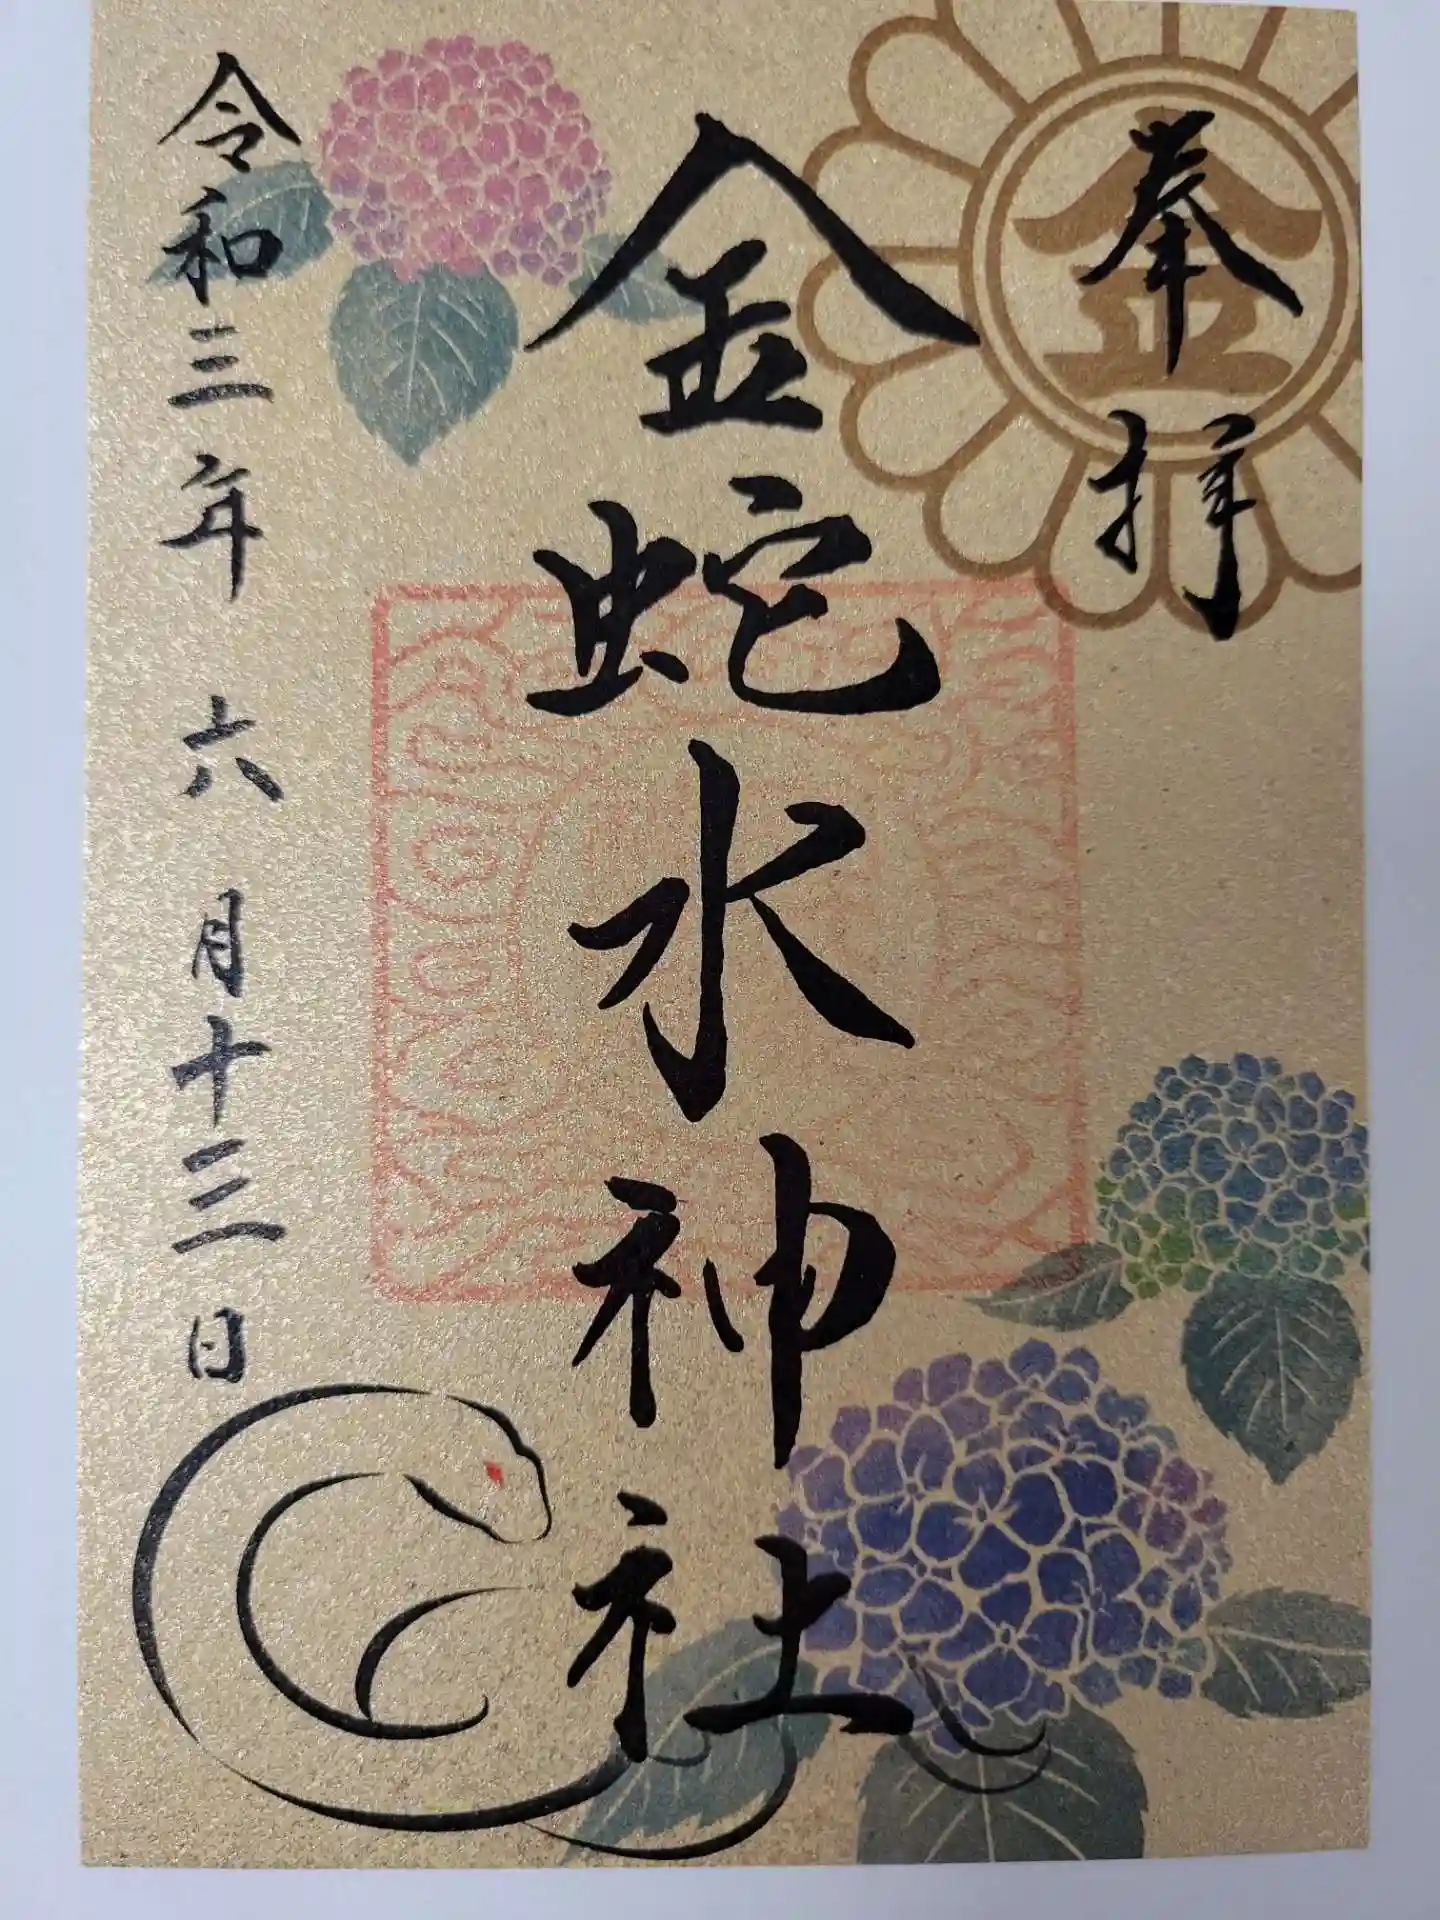 奉拝
金
金蛇水神社
令和三年六月十三日